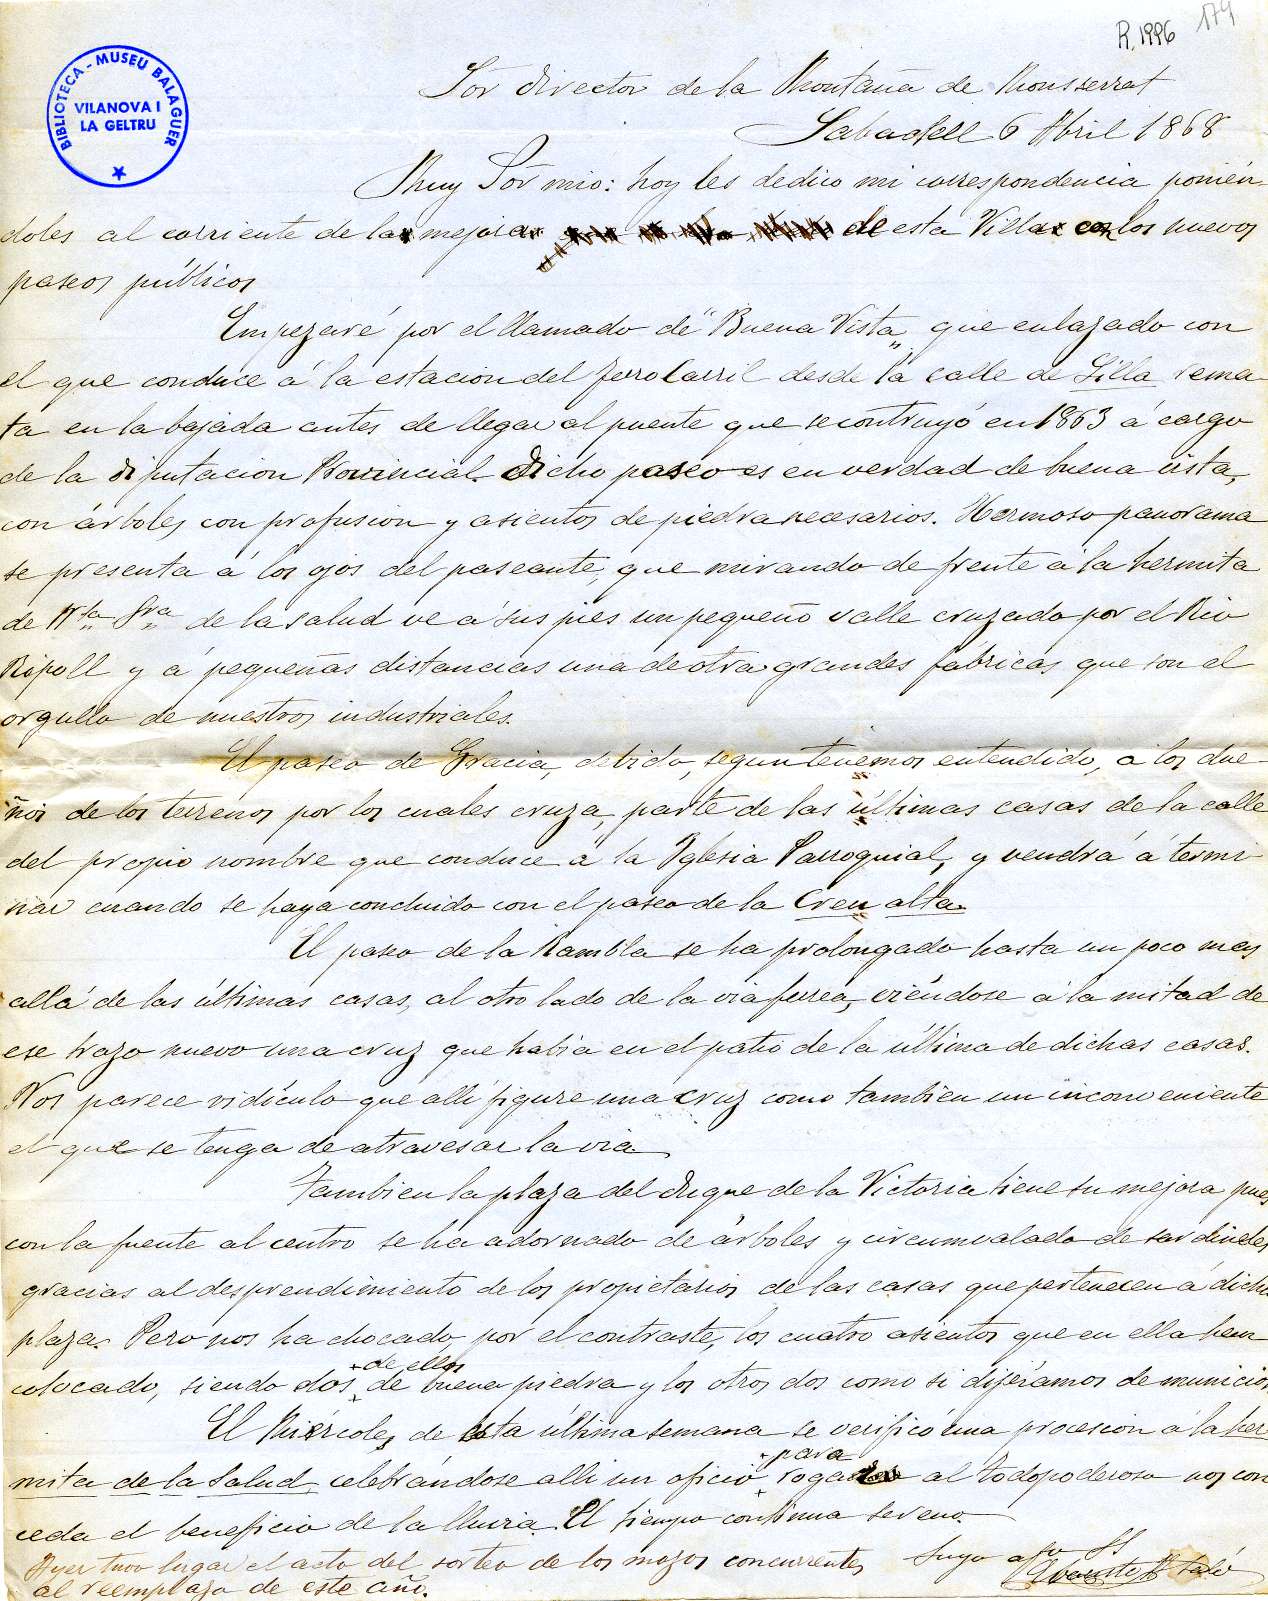 R. 1996 174
BIBLIOTECA - MUSEU BALAGUER
VILANOVA I
LA GELTRU
Sor director de la Montaña de Monsserrat
Sabadell 6 Abril 1868
Muy Sor mio: hoy les dedico mi correspondencia ponién-
doles al corriente de la mejora de esta Villa con los nuevos
paseos públicos
Empezaré por el llamado de "Buena Vista" que enlazado con
el que conduce á la estacion del ferrocarril desde la calle de Lilla rema-
ta en la bajada antes de llegar al puente que se contruyó en 1863 á cargo
de la diputacion Provincial. Dicho paseo es en verdad de buena vista,
con árboles con profusion y asientos de piedra necesarios. Hermoso panorama
se presenta á los ojos del paseante, que mirando de frente á la hermita
de Ntra Sra de la Salud ve á sus pies un pequeño valle cruzado por el Rio
Ripoll y á pequeñas distancias una de otra grandes fábricas que son el
orgullo de nuestros industriales.
El paseo de Gracia, debido, segun tenemos entendido, á los due-
ños de los terrenos por los cuales cruza, parte de las últimas casas de la calle
del propio nombre que conduce á la Yglesia Parroquial, y vendrá á termi-
nar cuando se haya concluido con el paseo de la Creu alta.
El paseo de la Rambla se ha prolongado hasta un poco mas
allá de las últimas casas, al otro lado de la via ferrea, viéndose á la mitad de
ese trazo nuevo una cruz que habia en el patio de la última de dichas casas.
Nos parece ridículo que alli figure una cruz como tambien un inconveniente
el que se tenga de atravesar la via.
Tambien la plaza del duque de la Victoria tiene su mejora pues
con la fuente al centro se ha adornado de árboles y circumvalado de sardineles
gracias al desprendimiento de los propietarios de las casas que pertenecen á dicha
plaza. Pero nos ha chocado, por el contraste, los cuatro asientos que en ella han
+ de ellos
colocado, siendo dos de buena piedra y los otros dos como si dijéramos de municion
El Miércoles de esta última semana se verificó una procesion á la her-
+ para
mita de la Salud, celebrándose alli un oficio rogar al todopoderoso nos con
ceda el beneficio de la lluvia. El tiempo continua sereno.
Ayer tuvo lugar el acto del sorteo de los mozos concurrentes
al reemplazo de este año.
Suyo afo SS